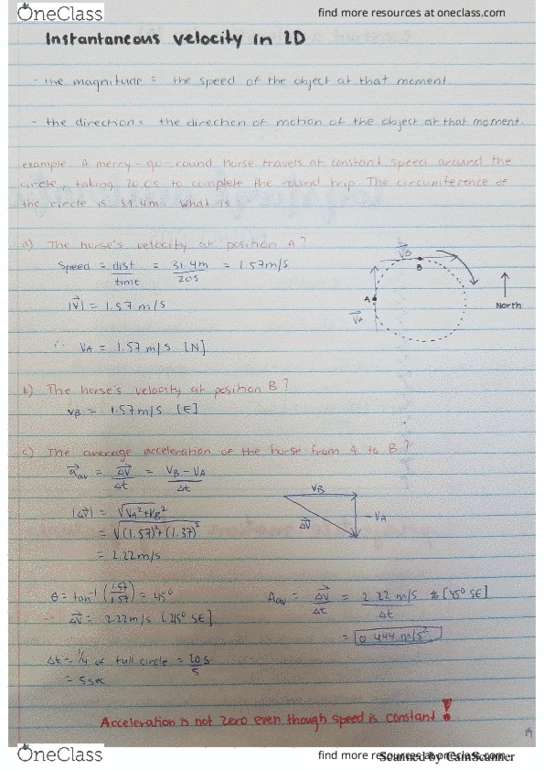 OneClass
find more resources at oneclass.com
Instantaneous velocity in 2D
- the magnitude = the speed of the object at that moment.
- the direction = the direction of motion of the object at that moment.
example. A merry-go-round horse travels at constant speed around the
circle, taking 20.0s to complete the round trip. The circumference of
the circle is 31.4m. What is
a) The horse's velocity at position A?
Speed = dist/time = 31.4m/20s = 1.57m/s
|V⃗| = 1.57 m/s
∴ VA = 1.57 m/s [N]
V⃗B
B
A
V⃗A
North
b) The horse's velocity at position B?
VB = 1.57m/s [E]
c) The average acceleration of the horse from A to B?
a⃗av = ΔV⃗/Δt = VB - VA/Δt
|ΔV⃗| = √VA² + VB²
= √(1.57)² + (1.57)²
= 2.22m/s
VB
ΔV⃗
-VA
θ = tan⁻¹ (1.57/1.57) = 45°
∴ ΔV⃗ = 2.22m/s [45° SE]
Aav = ΔV⃗/Δt = 2.22 m/s [45° SE]/Δt
= 0.444 m/s²
Δt = ¼ of full circle = 20s/5
= 5sec
Acceleration is not zero even though speed is constant!
OneClass
find more resources at oneclass.com
Scanned by CamScanner